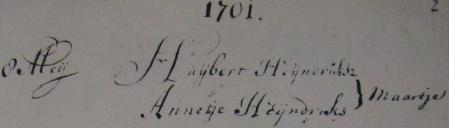 1701. 2
8 Meij Huijbert Heijndriksz
Annetje Heijndriks } Maartje